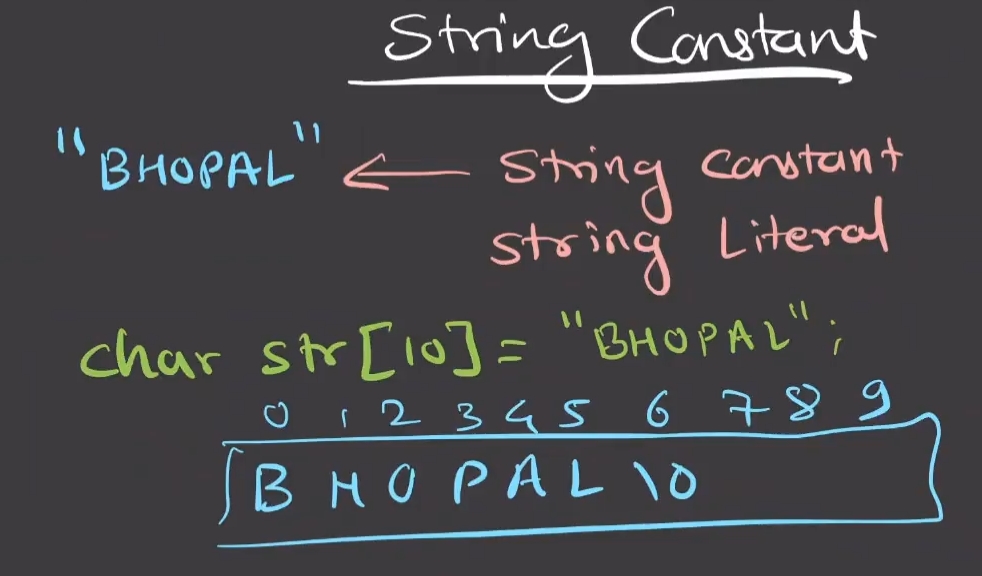 String Constant
"BHOPAL" ← String Constant
String Literal
char str[10] = "BHOPAL";
0 1 2 3 4 5 6 7 8 9
B H O P A L \0